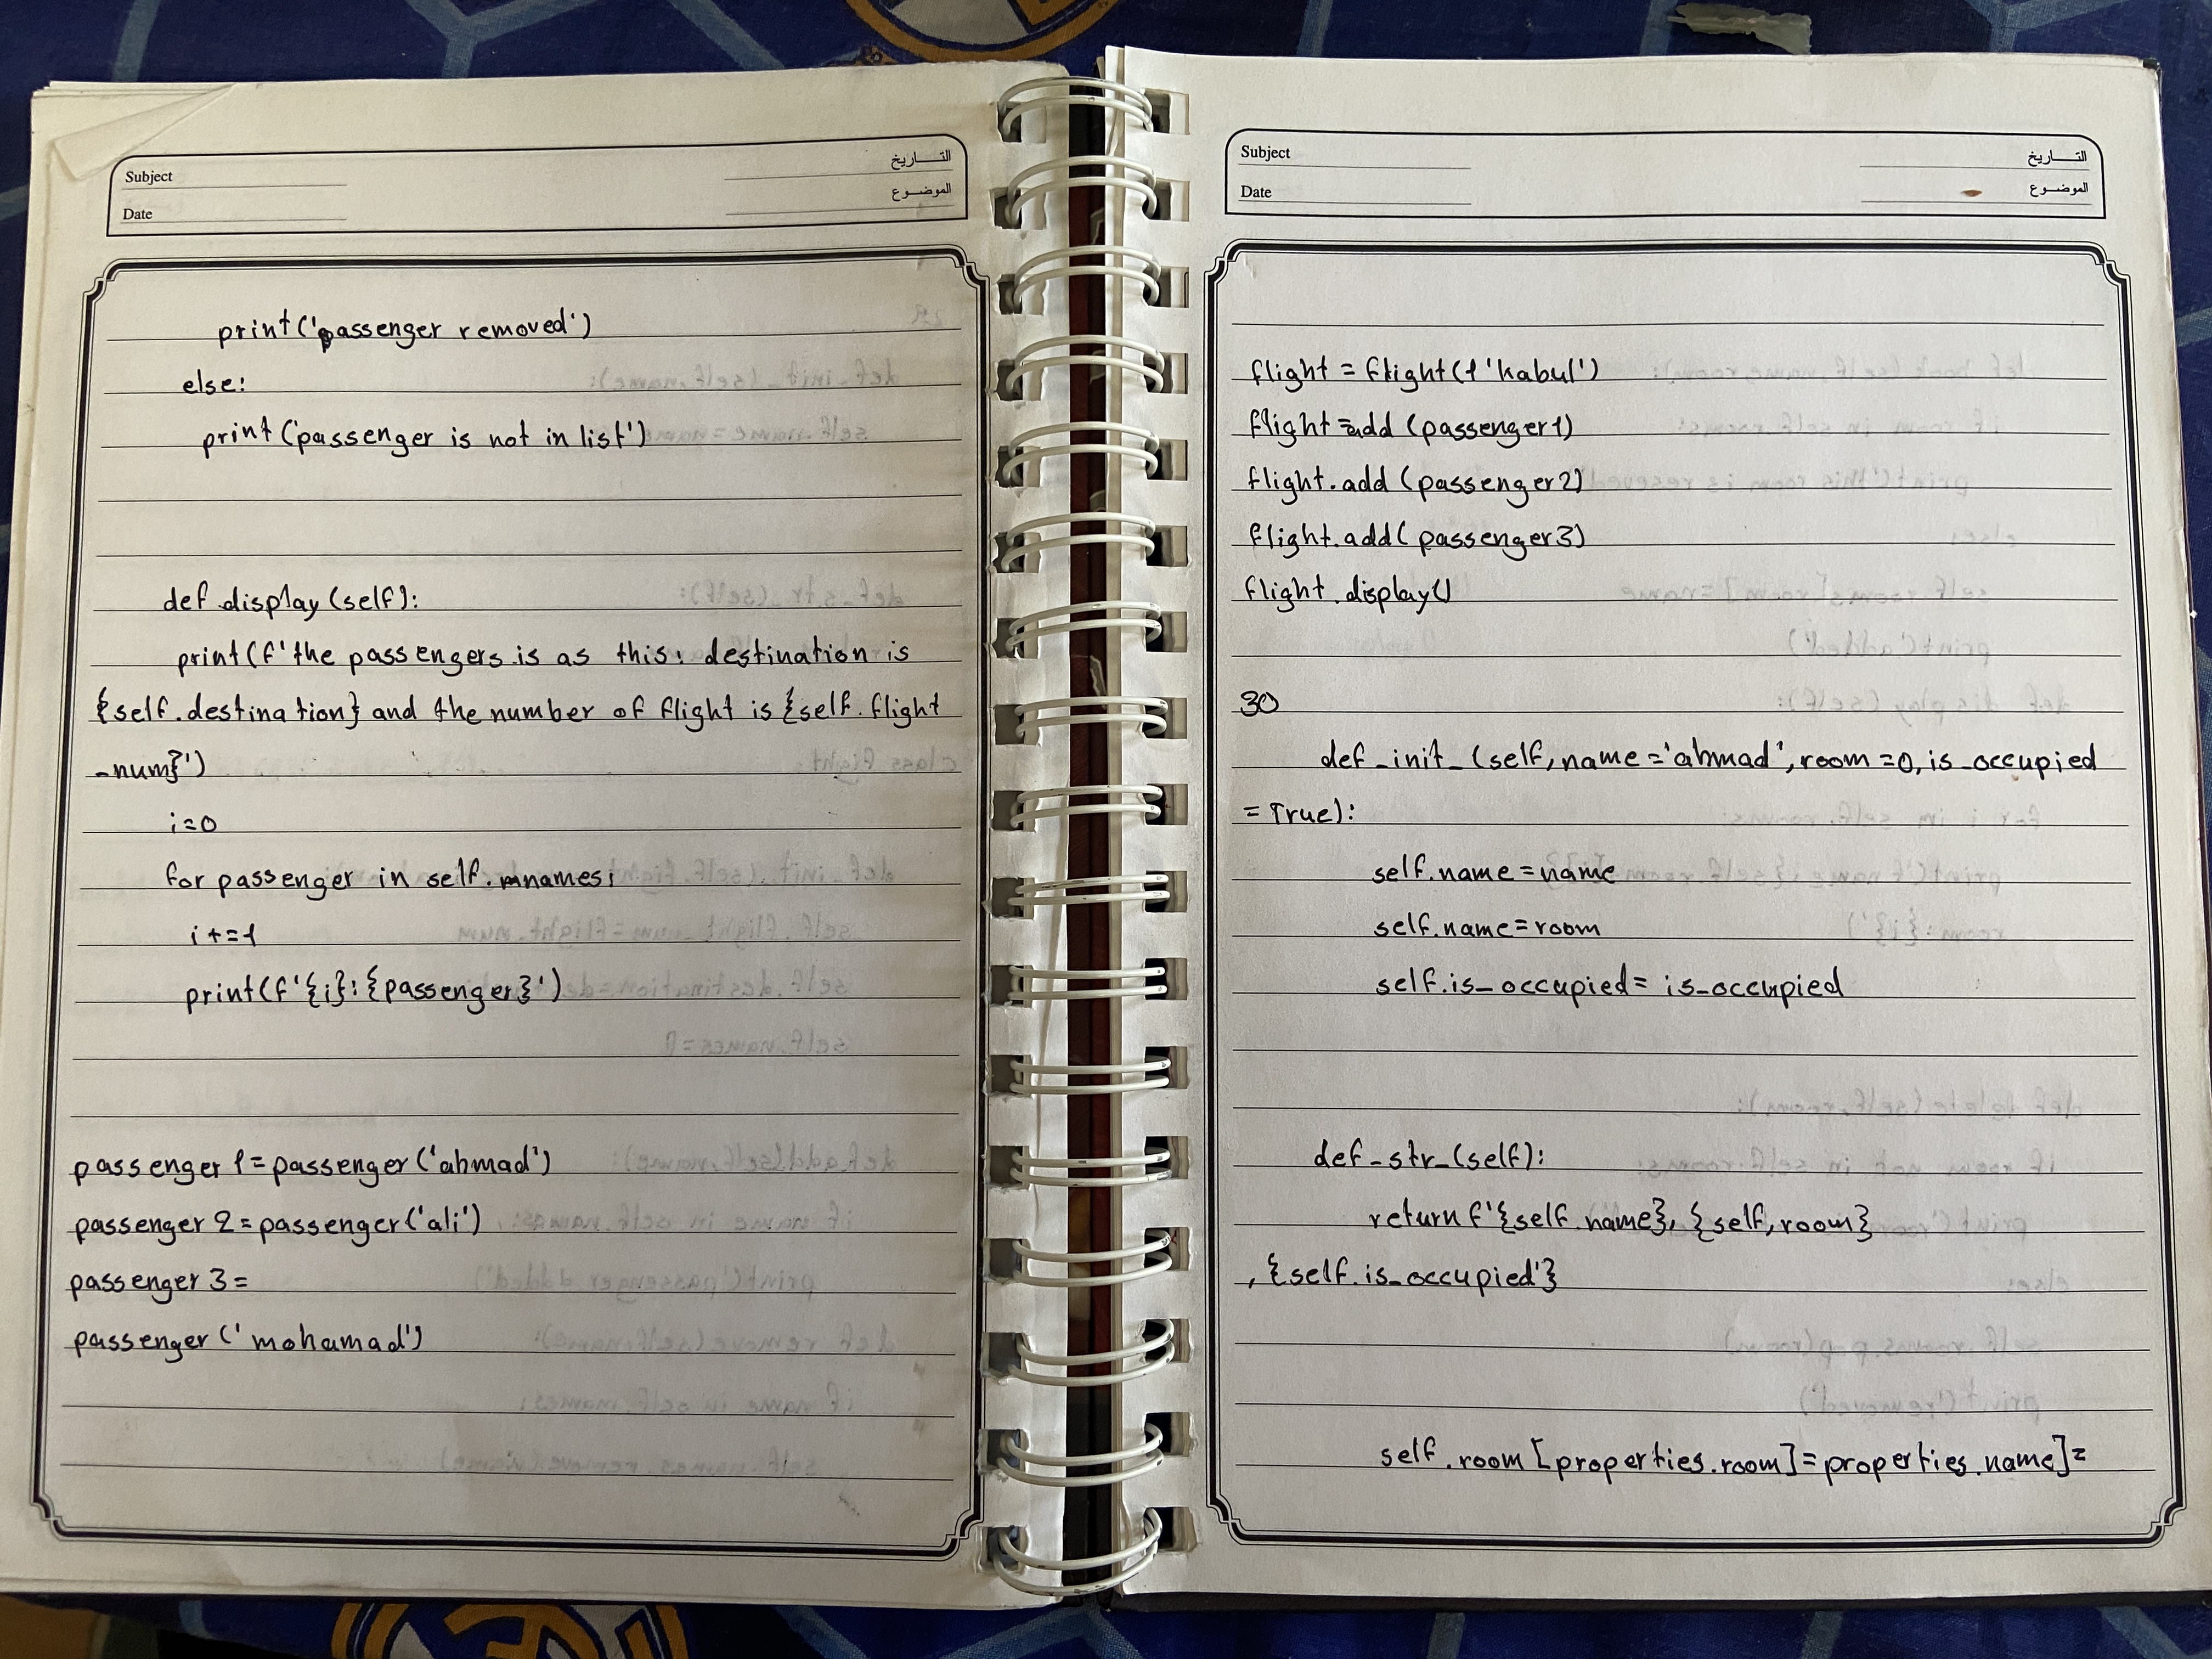 Subject
Date
التـــاريخ
الموضـــوع
print('passenger removed')
else:
print('passenger is not in list')
def display(self):
print(f'the passengers is as this: destination is
{self.destination} and the number of flight is {self.flight
_num}')
i=0
for passenger in self.mnames:
i+=1
print(f'{i}:{passenger}')
passenger1=passenger('ahmad')
passenger2=passenger('ali')
passenger3=
passenger('mohamad')
Subject
Date
التـــاريخ
الموضـــوع
flight=flight(1'kabul')
flight=add(passenger1)
flight.add(passenger2)
flight.add(passenger3)
flight.display()
30
def_init_(self,name='ahmad',room=0,is_occupied
=True):
self.name=name
self.name=room
self.is_occupied=is_occupied
def_str_(self):
return f'{self.name},{self,room}
,{self.is_occupied'}
self.room[properties.room]=properties.name]=